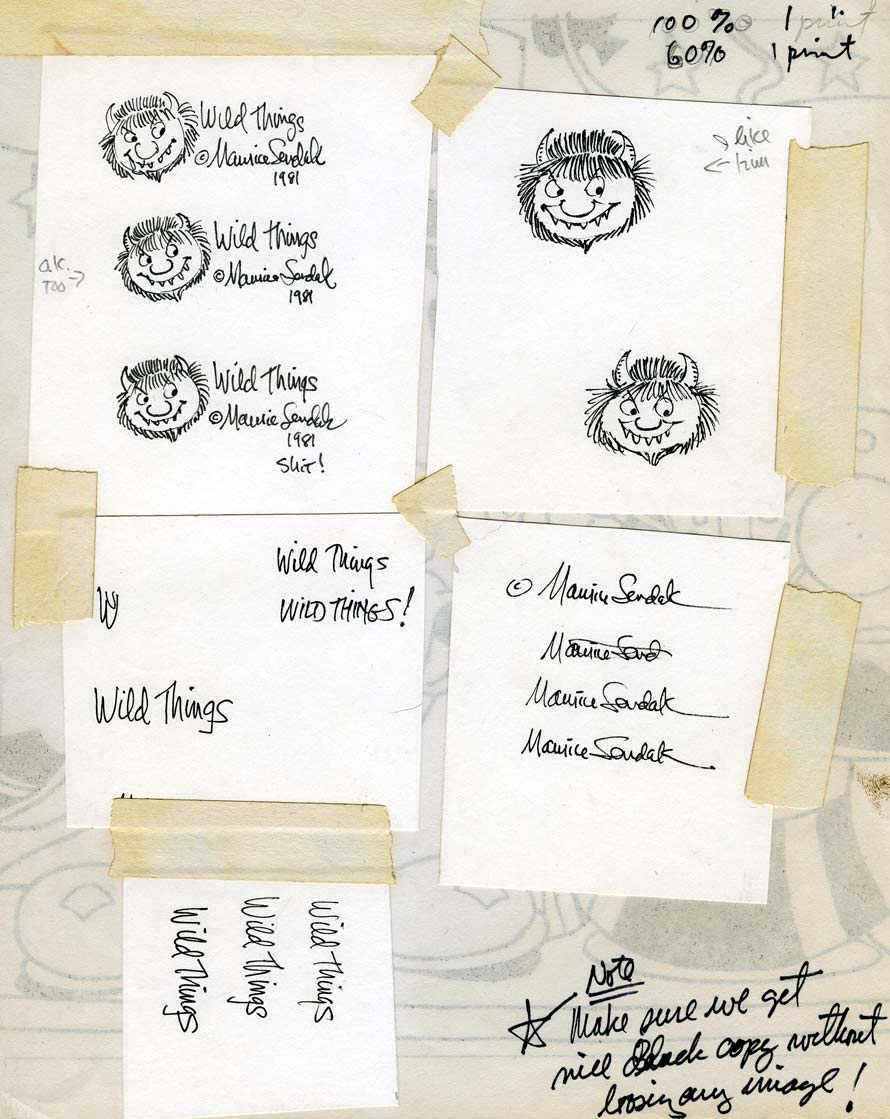 100% 1 print
60% 1 print
Wild Things
© Maurice Sendak
1981
Wild Things
© Maurice Sendak
1981
o.k.
TOO →
Wild Things
© Maurice Sendak
1981
Shit!
like
← him
Wild Things
WILD THINGS!
W
Wild Things
© Maurice Sendak
Maurice Send
Maurice Sendak
Maurice Sendak.
Wild Things
Wild Things
Wild Things
Note
Make sure we get
nice Black copy without
loosing any image!